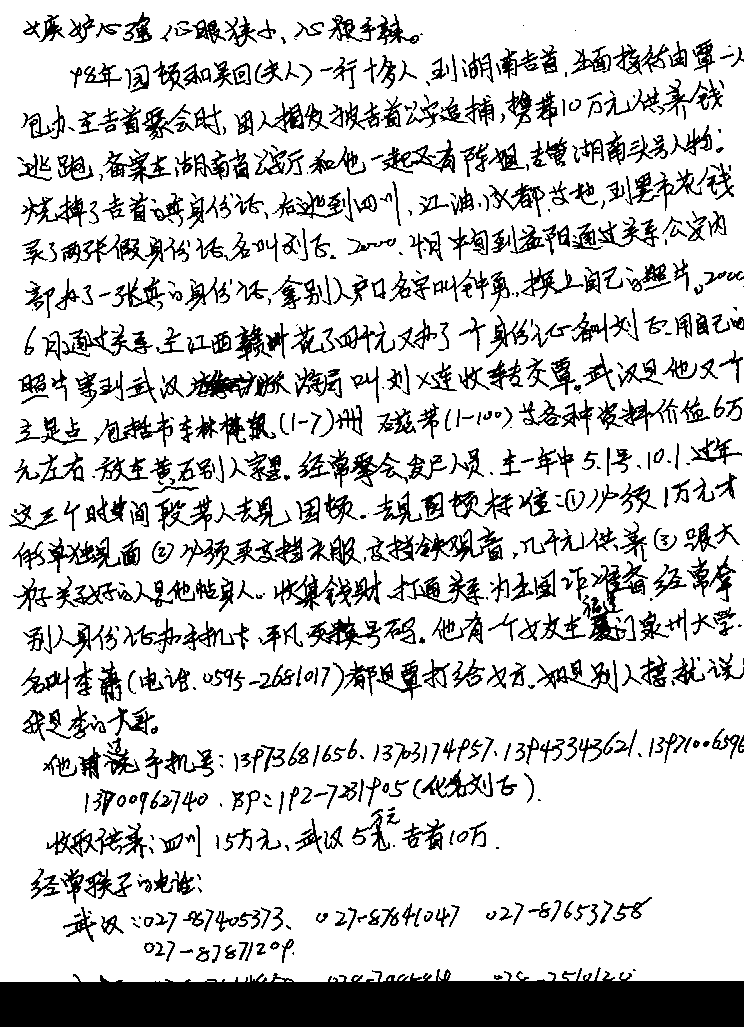 嫉妒心强,心眼狭小,心狠手辣。
98年国顿和吴回(夫人)一行十多人,到湖南吉首,全面接待由覃一人
包办.在吉首聚会时,因人揭发被吉首公安追捕,携带10万元以供养钱
逃跑,备案在湖南省公安厅和他一起还有陈姐,主管湖南头号人物;
烧掉了吉首的真身份证,后逃到四川,江油,成都,等地,到黑市花钱
买了两张假身份证,名叫刘飞.2000.4月中旬到益阳通过关系,公安内
部办了一张真的身份证,拿别人户口名字叫钟勇,换上自己的照片。2000.
6月通过关系,在江西赣州花了四千元又办了一个身份证名叫刘飞.用自己的
照片寄到武汉 叫刘X连收转交覃。武汉是他又一个
主据点,包括书 (1-7)册 磁带(1-100)等各种资料价值6万
元左右.放在黄石别人家里。经常聚会,发展人员.在一年中5.1号、10.1、过年
这三个时间段带人去见,国顿。去见国顿标准:①必须1万元才
能单独见面②必须买高档衣服,高档 观音,几千元供养③跟大
弟子关系好的人是他贴身人。收集钱财,打通关系,为出国工作准备,经常拿
别人身份证办手机卡,平凡更换号码。他有一个女友在福建厦门泉州大学.
名叫李 (电话.0595-2681017)都是覃打给女方。如是别人接,就说
我是李的大哥。
他 手机号:13973681656、13703174957、13943343621、1397100659
13900962740.BP:192-7231905(化名刘飞).
收取供养:四川15万元、武汉5万元.吉首10万.
经常联系的电话:
武汉:027-87405373、 027-87841047 027-87653758
027-87871209.